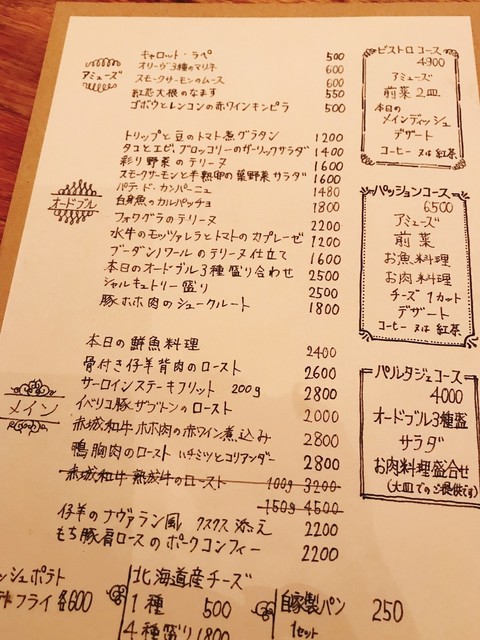 アミューズ
キャロット・ラペ 500
オリーヴ3種のマリネ 600
スモークサーモンのムース 600
紅芯大根のなます 550
ゴボウとレンコンの赤ワインキンピラ 500
オードブル
トリップと豆のトマト煮グラタン 1200
タコとエビ、ブロッコリーのガーリックサラダ 1400
彩り野菜のテリーヌ 1600
スモークサーモンと半熟卵の葉野菜サラダ 1600
パテ・ド・カンパーニュ 1480
白身魚のカルパッチョ 1800
フォワグラのテリーヌ 2200
水牛のモッツァレラとトマトのカプレーゼ 1200
ブーダンノワールのテリーヌ仕立て 1600
本日のオードブル3種盛り合わせ 2500
シャルキュトリー盛り 2500
豚ホホ肉のシュークルート 1800
メイン
本日の鮮魚料理 2400
骨付き仔羊背肉のロースト 2600
サーロインステーキフリット 200g 2800
イベリコ豚ザブトンのロースト 2000
赤城和牛ホホ肉の赤ワイン煮込み 2800
鴨胸肉のロースト ハチミツとコリアンダー 2800
赤城和牛 熟成牛のロースト 100g 3200
150g 4500
仔羊のナヴァラン風 クスクス添え 2200
もち豚肩ロースのポークコンフィー 2200
ビストロコース
4900
アミューズ
前菜2皿
本日の
メインディッシュ
デザート
コーヒー 又は 紅茶
パッションコース
6500
アミューズ
前菜
お魚料理
お肉料理
チーズ1カット
デザート
コーヒー 又は 紅茶
パルタジェコース
4000
オードブル3種盛
サラダ
お肉料理盛合せ
(大皿でのご提供です)
ッシュポテト
フライ 各600
北海道産チーズ
1種 500
4種盛り 1800
自家製パン 250
1セット